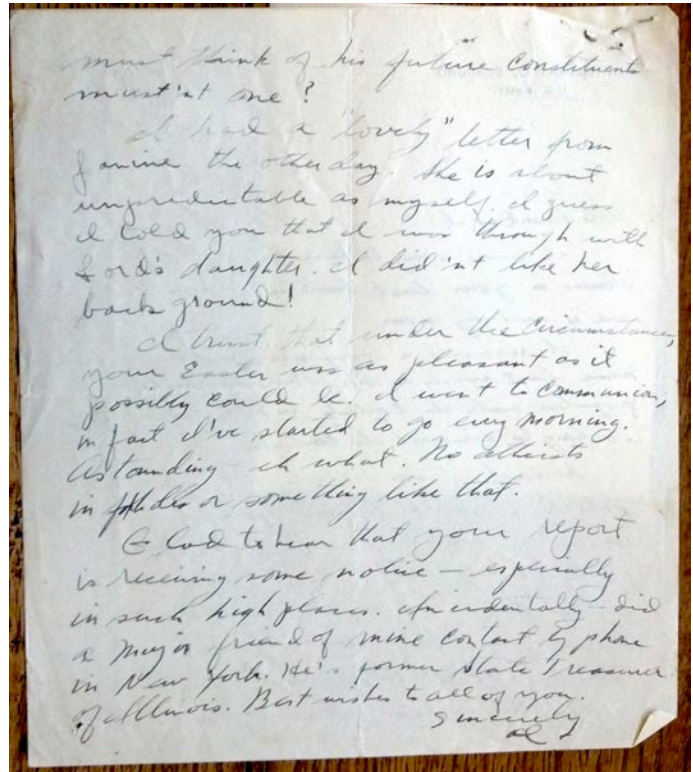 must think of his future constituents
must'nt one?
I had a "lovely" letter from
Janine the other day. She is about
unpredictable as myself. I guess
I told you that I was through with
Lord's daughter. I did'nt like her
back ground!
I trust, that under the circumstances,
your Easter was as pleasant as it
possibly could be. I went to communion,
in fact I've started to go every morning.
Astounding - eh what. No atheists
in or something like that.
Glad to hear that your report
is receiving some notice - especially
in such high places. Incidentally - did
a Major friend of mine contact by phone
in New York. He's former State Treasurer
of Illinois. Best wishes to all of you.
Sincerely
Al